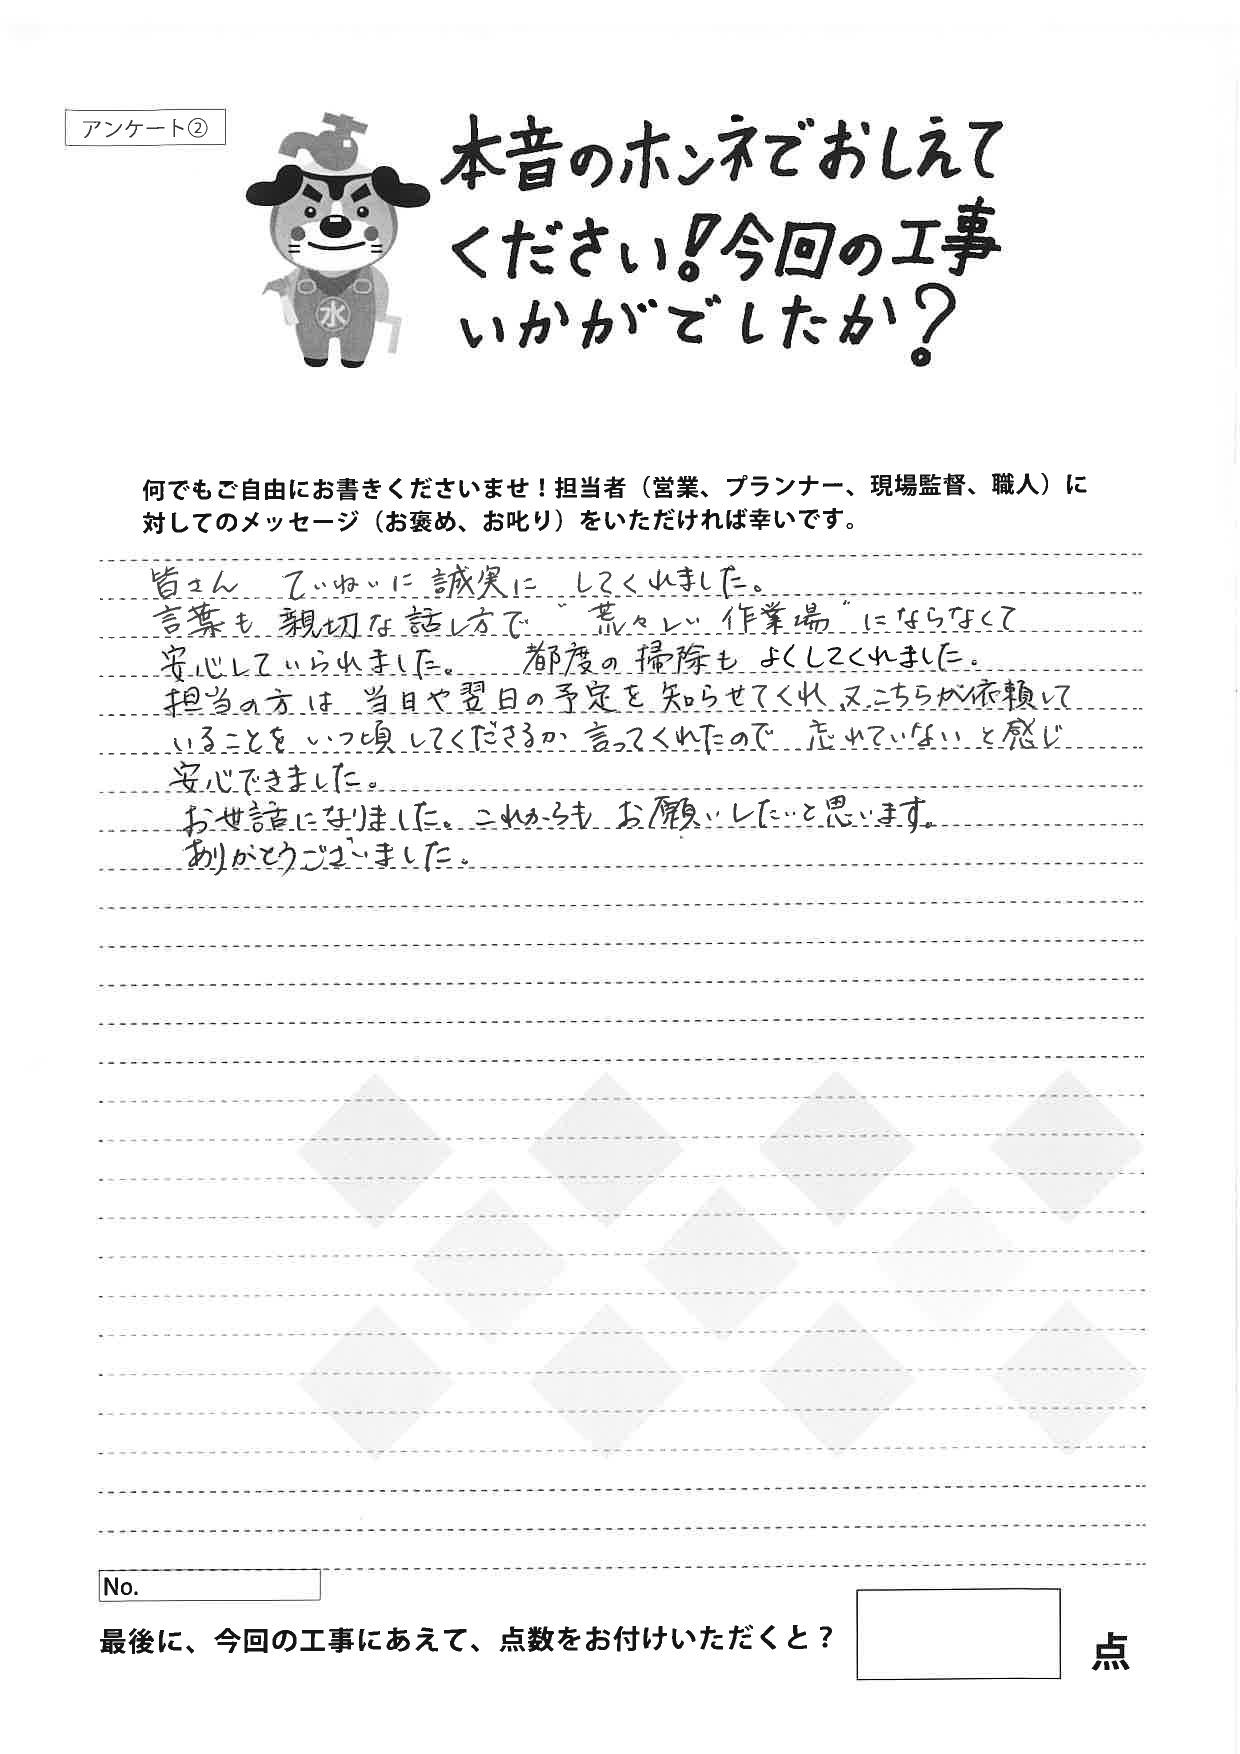 アンケート②
本音のホンネでおしえて
ください!今回の工事
いかがでしたか?
水
何でもご自由にお書きくださいませ！担当者（営業、プランナー、現場監督、職人）に
対してのメッセージ（お褒め、お叱り）をいただければ幸いです。
皆さん ていねいに 誠実に してくれました。
言葉も 親切な話し方で "荒々しい 作業場"にならなくて
安心していられました。 都度の掃除も よくしてくれました。
担当の方は 当日や翌日の予定を 知らせてくれ、又こちらが依頼して
いることを いつ頃 してくださるか 言ってくれたので 忘れていないと感じ
安心できました。
お世話になりました。これからも お願いしたいと思います。
ありがとうございました。
No.
最後に、今回の工事にあえて、点数をお付けいただくと？
点